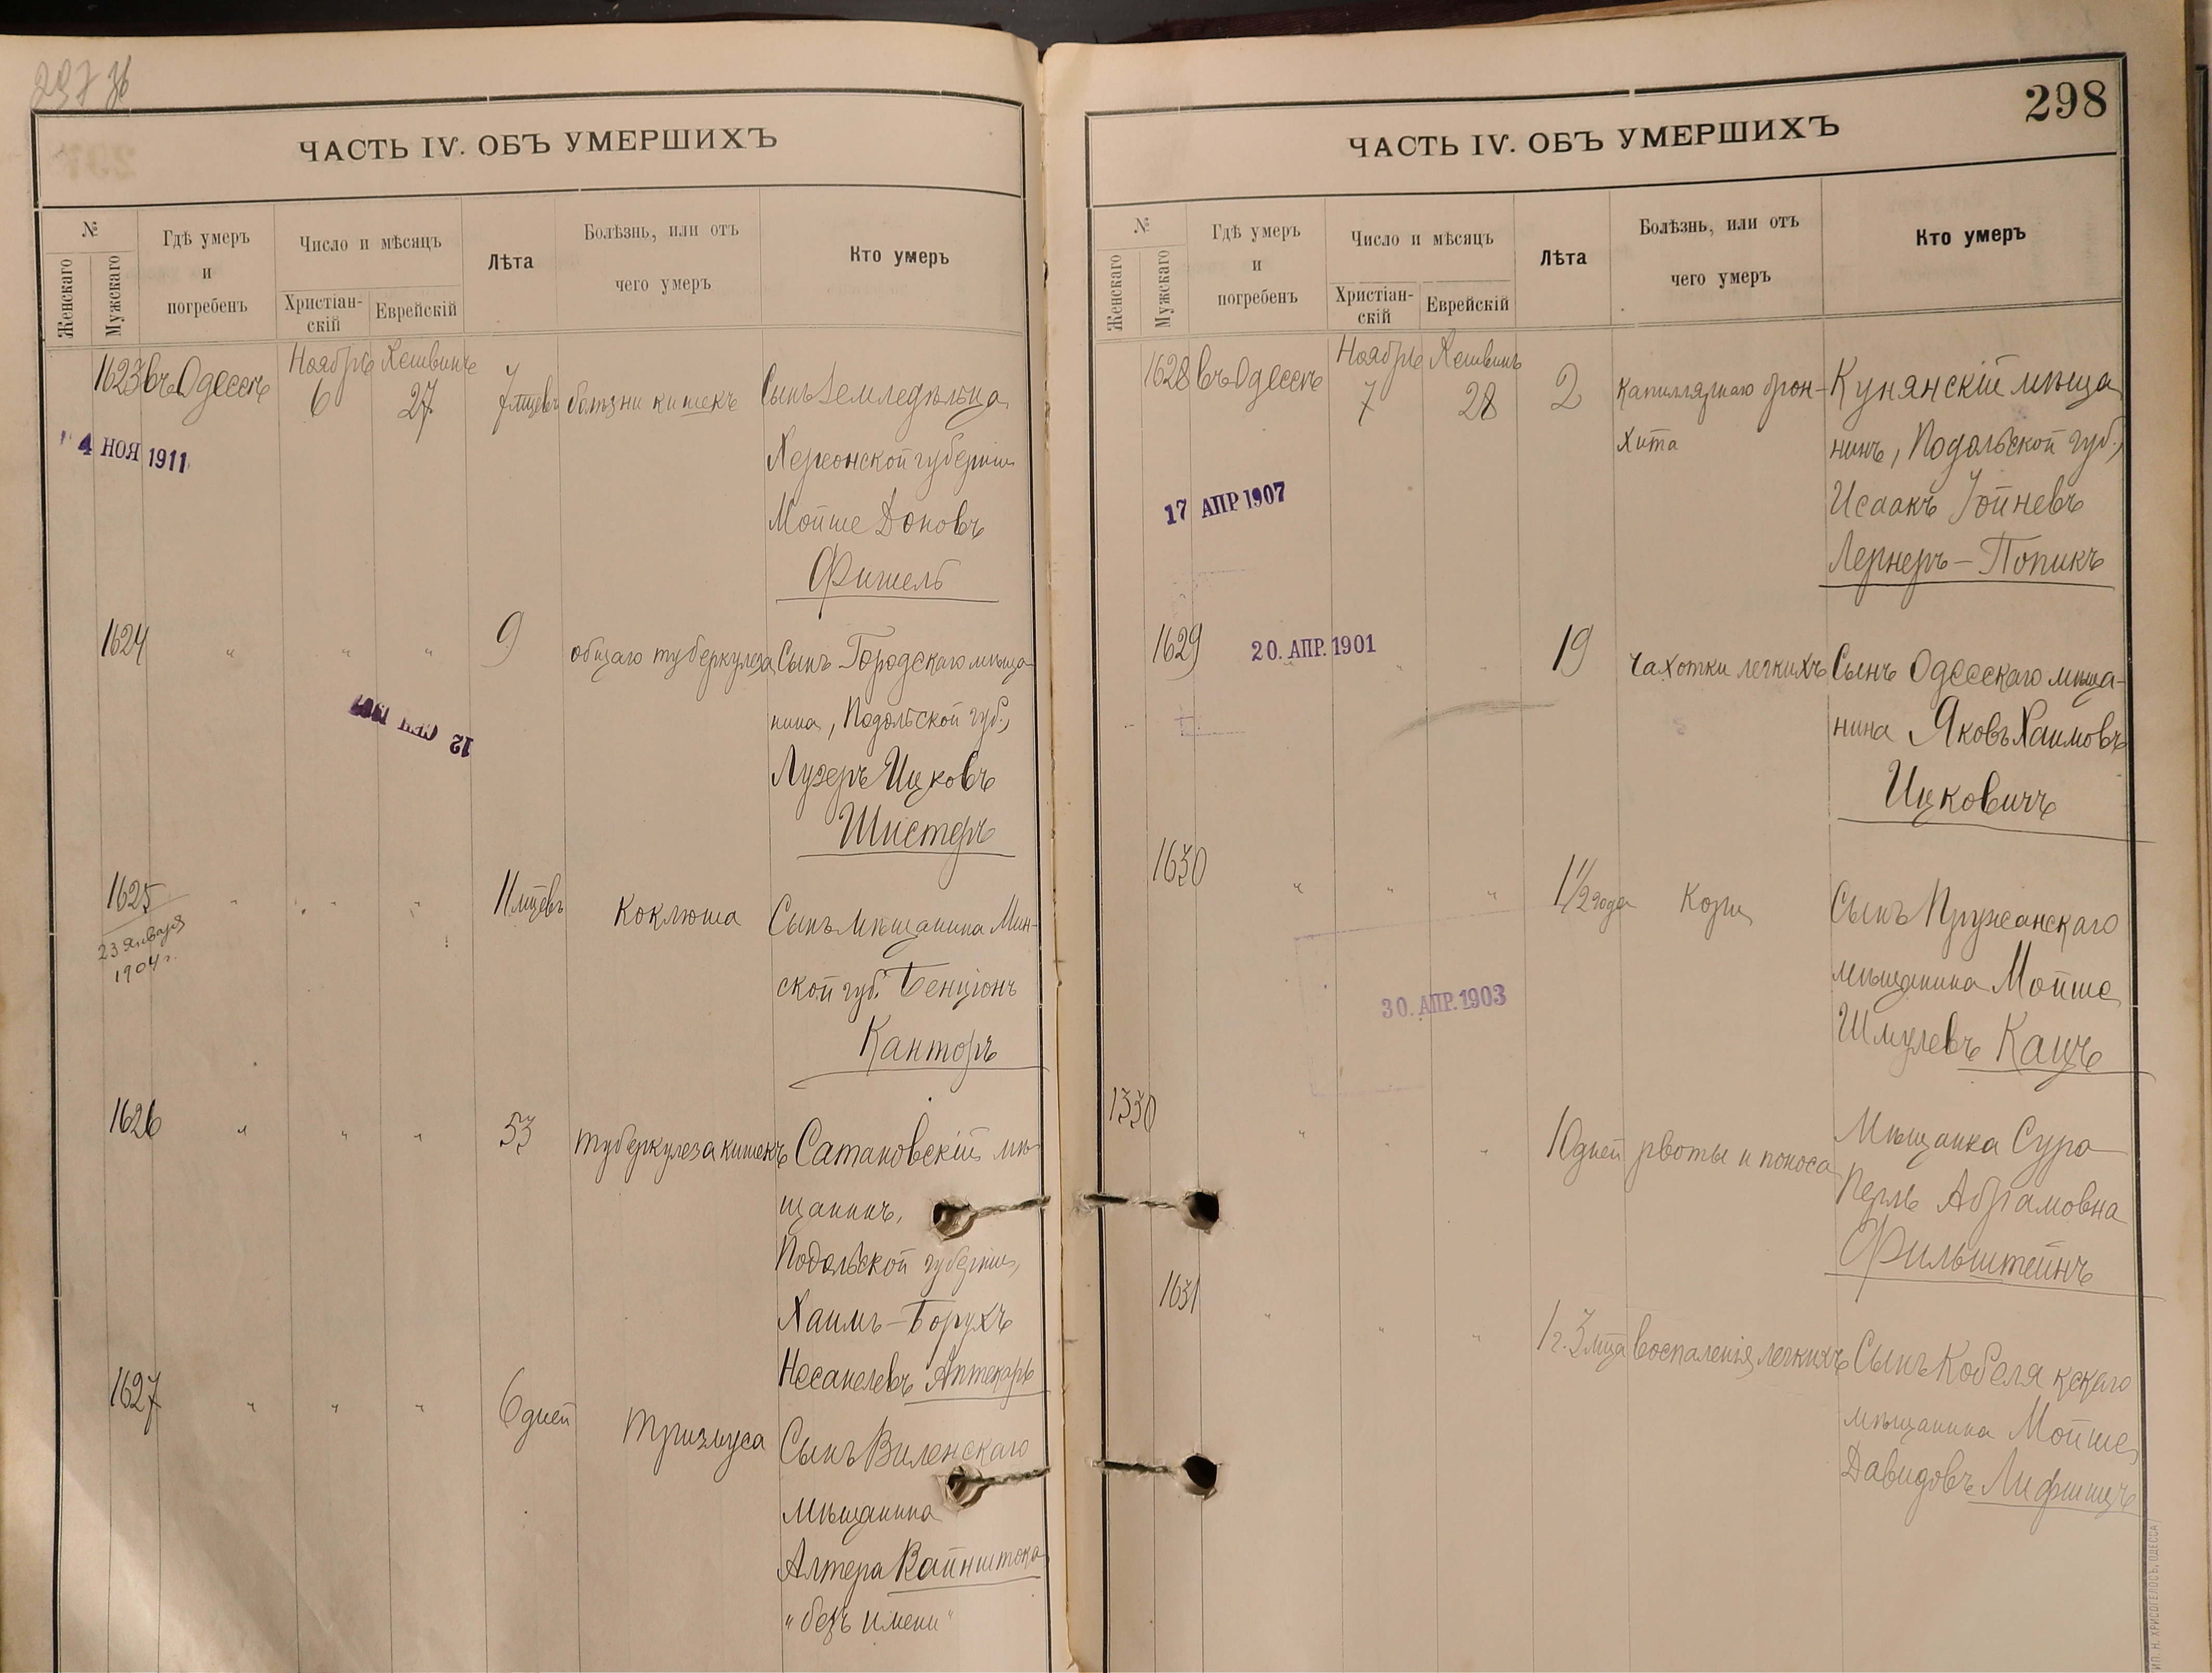 297 об
ЧАСТЬ IV. ОБЪ УМЕРШИХЪ
№
Женскаго
Мужскаго
Гдѣ умеръ
и
погребенъ
Число и мѣсяцъ
Христіан-
скій
Еврейскій
Лѣта
Болѣзнь, или отъ
чего умеръ
Кто умеръ
1623 въ Одессѣ Ноября 6 Хешвинъ 27 7 мцевъ болѣзни кишекъ Сынъ земледѣльца
Херсонской губерніи
Мойше Доновъ
Фишель
4 НОЯ 1911
1624 " " " 9 общаго туберкулеза Сынъ Городскаго мѣща-
нина, Подольской губ.,
Лузеръ Ицковъ
Шистеръ
12 СЕН 1907
1625 " " " 11 мцевъ Коклюша Сынъ мѣщанина Мин-
ской губ. Бенціонъ
Канторъ
23 Января
1904 г.
1626 " " " 53 туберкулеза кишекъ Сатановскій мѣ-
щанинъ,
Подольской губерніи,
Хаимъ-Борухъ
Несанелевъ Аптекарь
1627 " " " 6 дней Тризмуса Сынъ Виленскаго
мѣщанина
Алтера Вайнштока
"безъ имени"
298
ЧАСТЬ IV. ОБЪ УМЕРШИХЪ
№
Женскаго
Мужскаго
Гдѣ умеръ
и
погребенъ
Число и мѣсяцъ
Христіан-
скій
Еврейскій
Лѣта
Болѣзнь, или отъ
чего умеръ
Кто умеръ
1628 въ Одессѣ Ноября 7 Хешвинъ 28 2 Капиллярнаго брон- Кунянскій мѣща
хита нинъ, Подольской губ.,
Исаакъ Іойневъ
Лернеръ-Попикъ
17 АПР 1907
1629 " " " 19 Чахотки легкихъ Сынъ Одесскаго мѣща-
нина Яковъ Хаимовъ
Ицковичъ
20. АПР. 1901
1630 " " " 1 1/2 года Кори Сынъ Пружанскаго
мѣщанина Мойше
Шмулевъ Кацъ
30. АПР. 1903
1330 " " " 10 дней рвоты и поноса Мѣщанка Сура
Перль Абрамовна
Фильштейнъ
1631 " " " 1 г. 3 мца воспаленія легкихъ Сынъ Кобелякскаго
мѣщанина Мойше
Давидовъ Лифшицъ
Н. ХРИСОГЕЛОСЪ, ОДЕССА